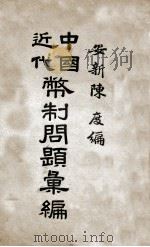 安新陳度編
中國
近代
幣制問題彙編